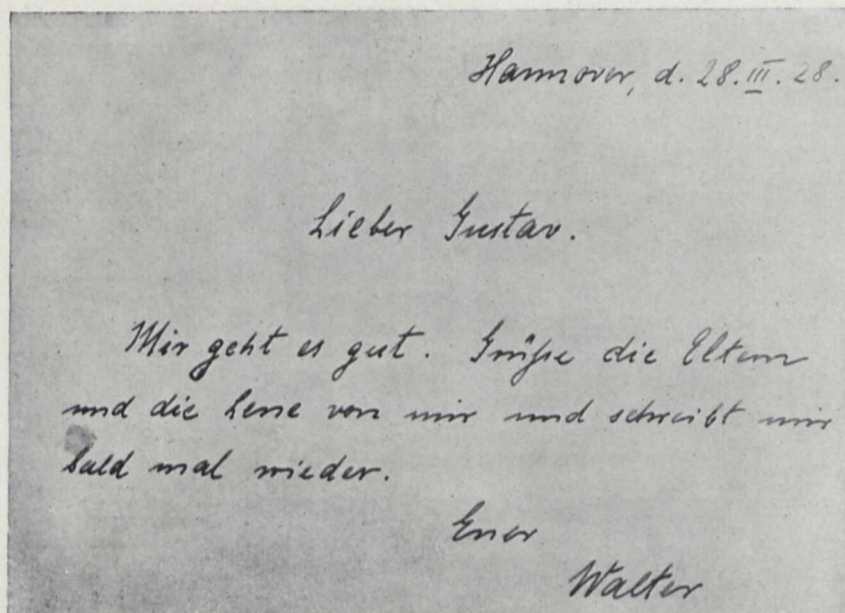 Hannover, d. 28. III. 28.
Lieber Gustav.
Mir geht es gut. Grüße die Eltern
und die Lene von mir und schreibt mir
bald mal wieder.
Euer
Walter